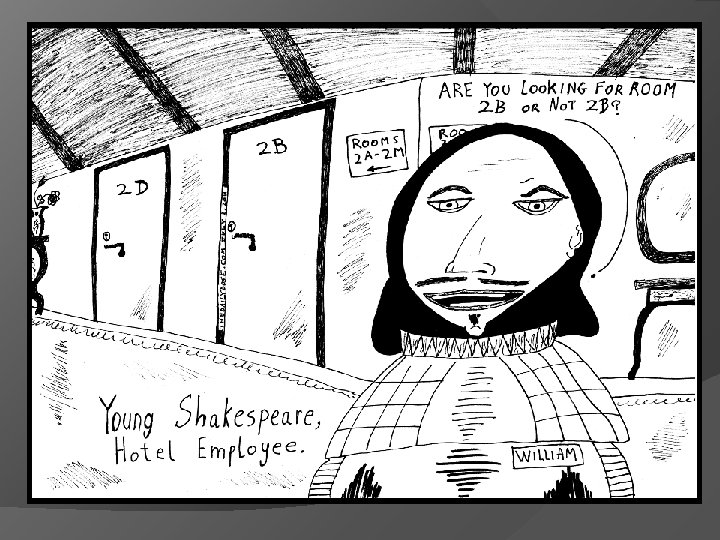 ARE YOU LOOKING FOR ROOM
2B OR NOT 2B?
2D
2B
ROOMS
2A-2M
ROO
Young Shakespeare,
Hotel Employee.
WILLIAM